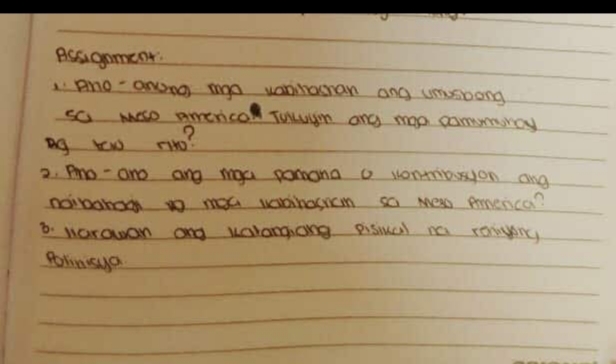 Assignment:
1. Ano-anong mga kabihasnan ang umusbong
sa Meso America Tukuyin ang mga pamumuhay
ng mga rito?
2. Ano-ano ang mga pamana o kontribusyon ang
naibahagi ng mga kabihasnan sa Meso America?
3. ilarawan ang katangiang Pisikal na rehiyong
Polinisya